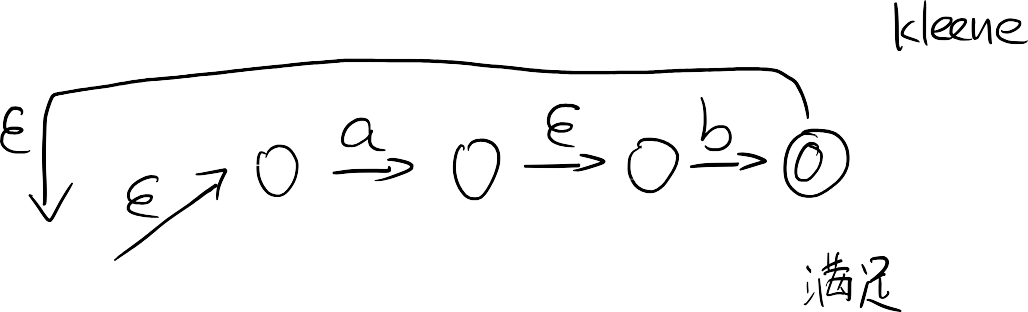 kleene
ε ε a ε b
满足